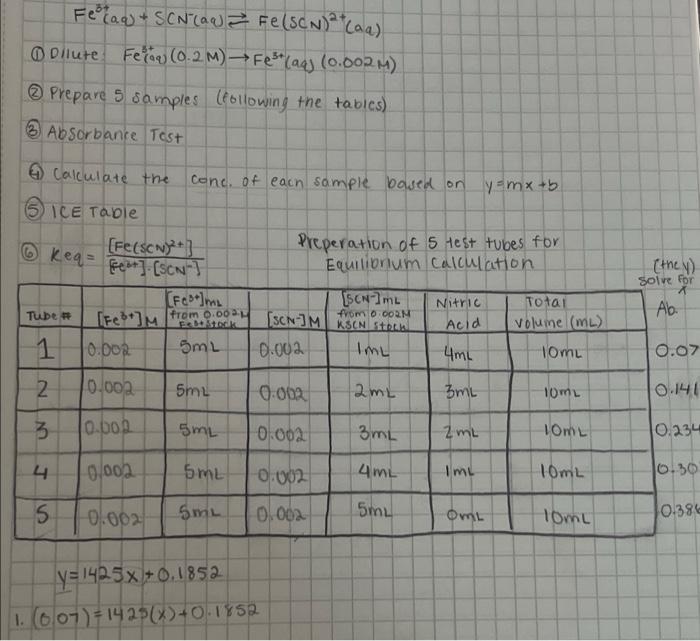 Fe³⁺(aq) + SCN⁻(aq) ⇌ Fe(SCN)²⁺(aq)
① Dilute: Fe³⁺(aq) (0.2M) → Fe³⁺(aq) (0.002M)
② Prepare 5 samples (following the tables)
③ Absorbance Test
④ Calculate the conc. of each sample based on y=mx+b
⑤ ICE Table
⑥ Keq = [Fe(SCN)²⁺] / [Fe³⁺]·[SCN⁻]
Preperation of 5 test tubes for
Equilibrium Calculation
(the y)
solve for
x
Tube # | [Fe³⁺]M | [Fe³⁺]mL from 0.002M Fe³⁺ Stock | [SCN⁻]M | [SCN⁻]mL from 0.002M KSCN Stock | Nitric Acid | Total volume (mL) | Ab.
1 | 0.002 | 5mL | 0.002 | 1mL | 4mL | 10mL | 0.07
2 | 0.002 | 5mL | 0.002 | 2mL | 3mL | 10mL | 0.141
3 | 0.002 | 5mL | 0.002 | 3mL | 2mL | 10mL | 0.234
4 | 0.002 | 5mL | 0.002 | 4mL | 1mL | 10mL | 0.30
5 | 0.002 | 5mL | 0.002 | 5mL | 0mL | 10mL | 0.386
y=1425x+0.1852
1. (0.07)=1425(x)+0.1852